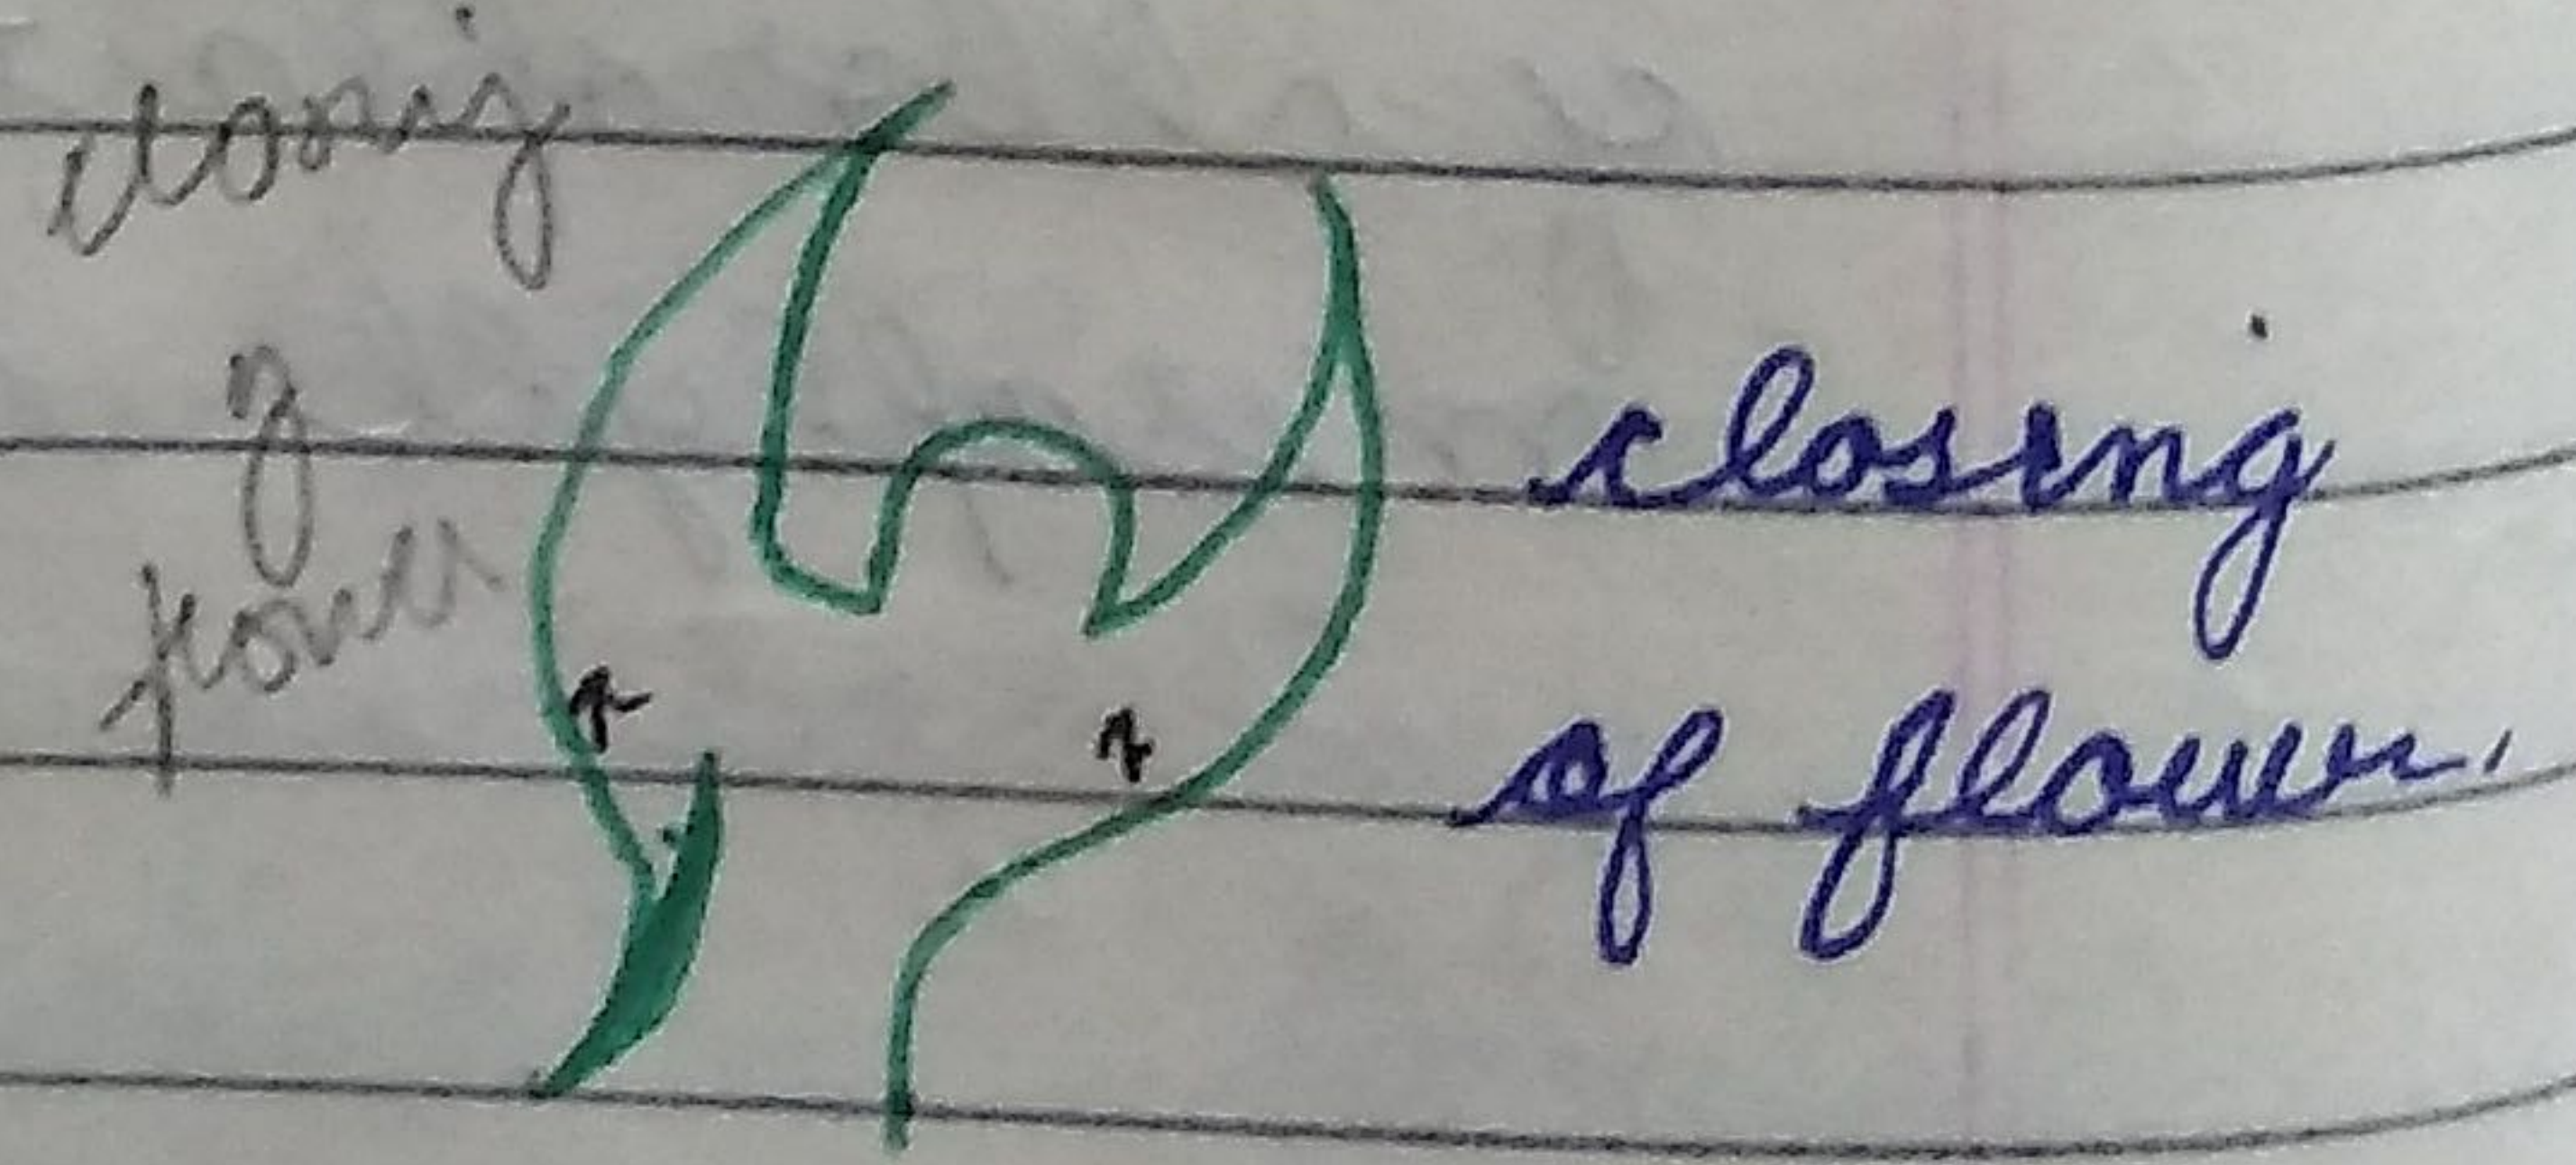 closing
of
flower
closing
of flower.